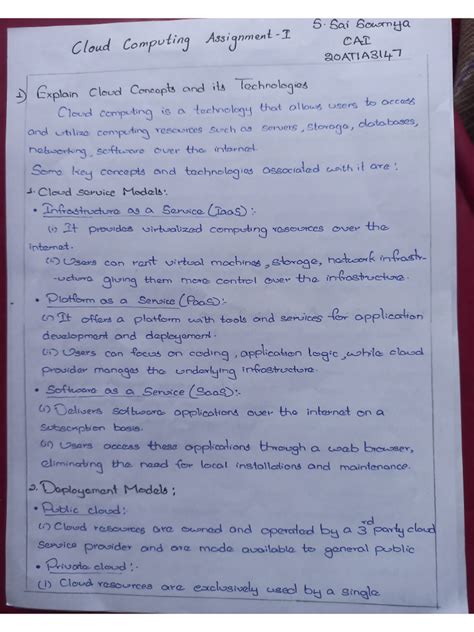 Cloud Computing Assignment-I
S. Sai Sowmya
CAI
20AT1A3147
1) Explain Cloud Concepts and its Technologies
Cloud computing is a technology that allows users to access
and utilize computing resources such as servers, storage, databases,
networking, software over the internet.
Some key concepts and technologies associated with it are:
1. Cloud Service Models:
• Infrastructure as a Service (IaaS):-
(i) It provides virtualized computing resources over the
internet.
(ii) Users can rent virtual machines, storage, network infrastr-
-ucture giving them more control over the infrastructure.
• Platform as a Service (PaaS):-
(i) It offers a platform with tools and services for application
development and deployement.
(ii) Users can focus on coding, application logic, while cloud
provider manages the underlying infrastructure.
• Software as a Service (SaaS):-
(i) Delivers software applications over the internet on a
subscription basis.
(ii) Users access these applications through a web browser,
eliminating the need for local installations and maintenance.
2. Deployement Models;
• Public cloud:-
(i) Cloud resources are owned and operated by a 3rd party cloud
service provider and are made available to general public
• Private cloud:-
(i) Cloud resources are exclusively used by a single